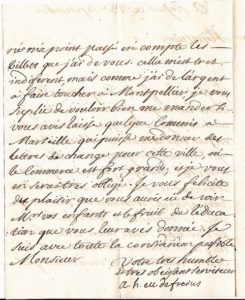 ne m'a point passé en compte les
billets que j'ai de vous. cella m'est tres
indiferent mais comme j'ai de l'argent
a faire toucher a Montpellier je vous
suplie de vouloir bien me mander si
vous avés laissé quelque Commis a
Marseille qui puisse me donner des
lettres de change pour cette ville, ou
le Commerce est fort grand, et je vous
en serai tres obligé. Je vous felicite
du plaisir que vous aurés eu de voir
M vos enfants et le fruit de l'educa
tion que vous leur avés donnée. Je
suis avec toute la consideration possible
Monsieur
Votre tres humble
et tres obeissant serviteur